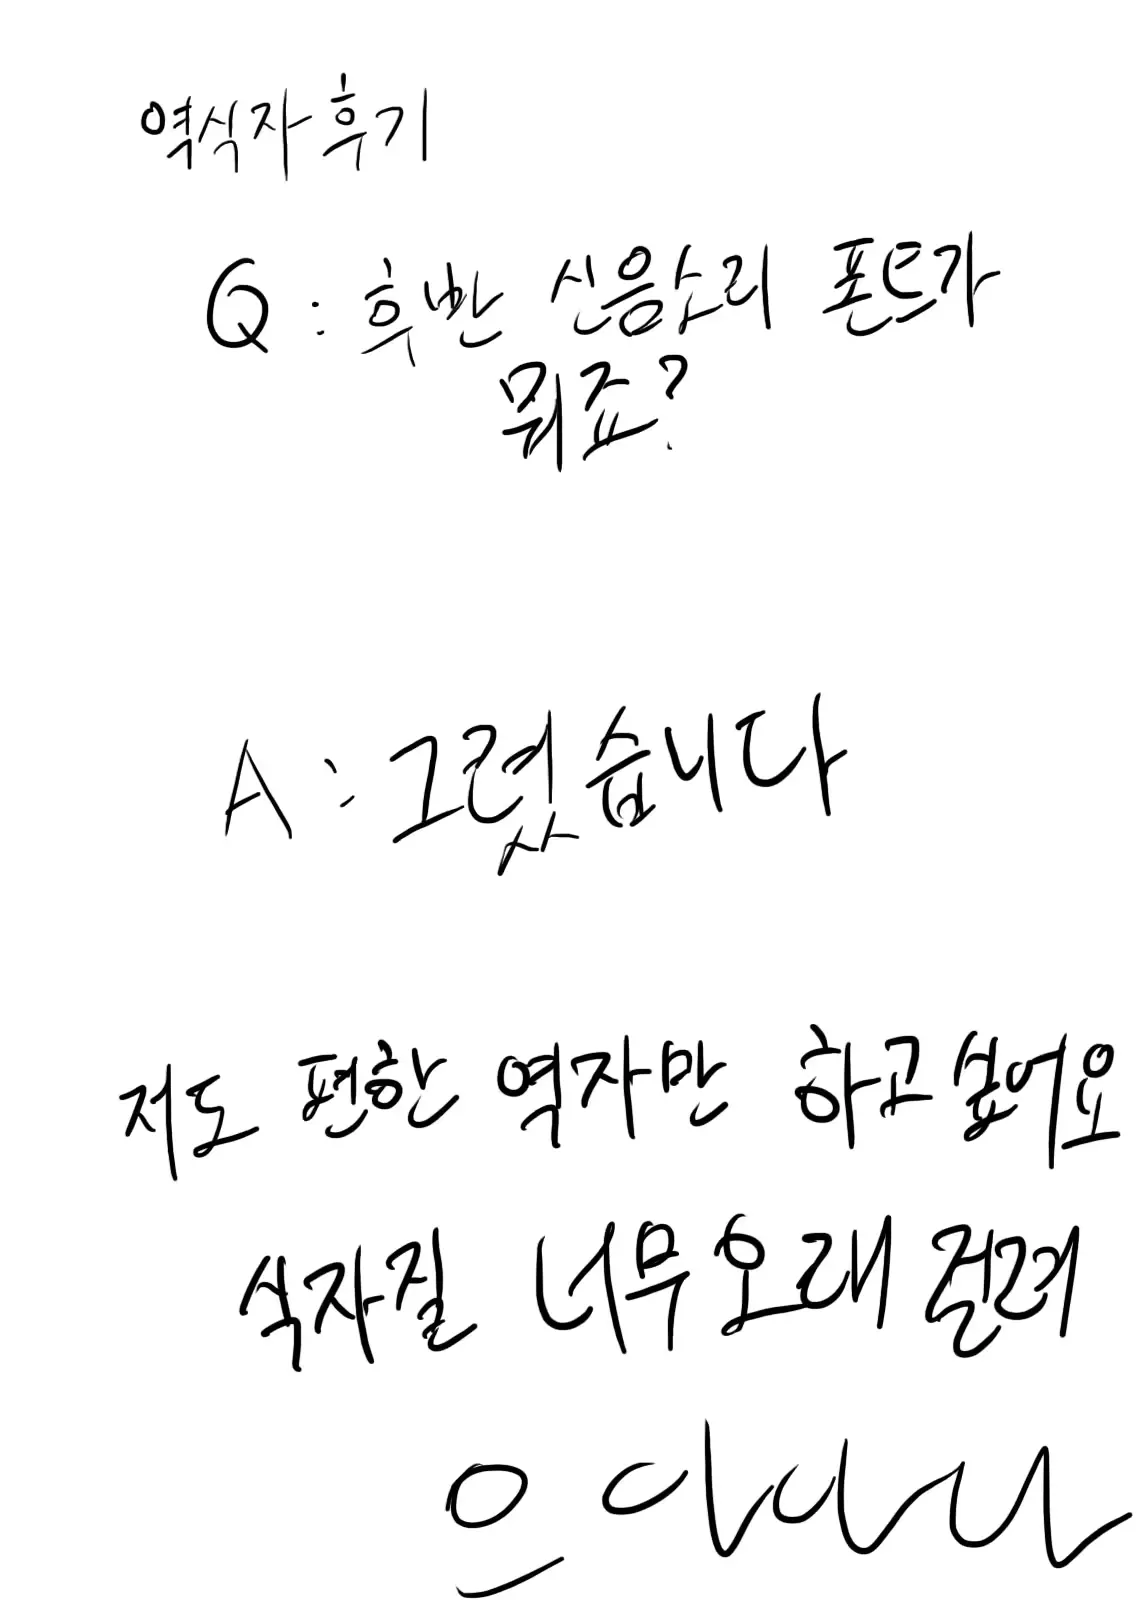 역식자후기
Q : 후반 신음소리 폰트가
뭐죠?
A : 그렸습니다
저도 편한 역자만 하고싶어요
식자질 너무 오래 걸려
으아아